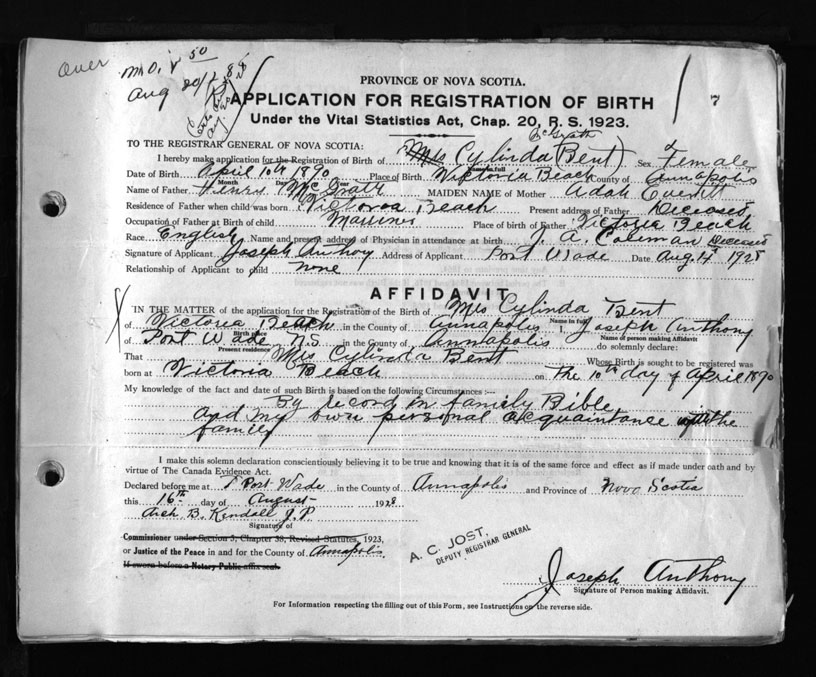 Over
M.O. 50
Aug 20/28
PROVINCE OF NOVA SCOTIA.
APPLICATION FOR REGISTRATION OF BIRTH
7
Under the Vital Statistics Act, Chap. 20, R. S. 1923.
McGrath
TO THE REGISTRAR GENERAL OF NOVA SCOTIA:
I hereby make application for the Registration of Birth of Mrs Cylinda (Bent) Sex Female
Name in full
Date of Birth April 10th 1890 Place of Birth Victoria Beach County of Annapolis
Month Day Year
Name of Father Henry McGrath MAIDEN NAME of Mother Adah Everett
Residence of Father when child was born Victoria Beach Present address of Father Deceased
Occupation of Father at Birth of child Mariner Place of birth of Father Victoria Beach
Race English Name and present address of Physician in attendance at birth J. A. Coleman Deceased
Signature of Applicant Joseph Anthoy Address of Applicant Port Wade Date Aug. 4th 1928
Relationship of Applicant to child none
AFFIDAVIT
IN THE MATTER of the application for the Registration of the Birth of Mrs Cylinda Bent
Name in full
of Victoria Beach in the County of Annapolis I, Joseph Anthony
Birth place Name of person making Affidavit
of Port Wade N.S. in the County of Annapolis do solemnly declare:
Present residence
That Mrs Cylinda Bent Whose Birth is sought to be registered was
born at Victoria Beach on The 10th day of April 1890
My knowledge of the fact and date of such Birth is based on the following Circumstances :—
By record in family Bible
and my own personal acquaintance with the
family
I make this solemn declaration conscientiously believing it to be true and knowing that it is of the same force and effect as if made under oath and by
virtue of The Canada Evidence Act.
Declared before me at Port Wade in the County of Annapolis and Province of Nova Scotia
this 16th day of August 1928
Arch B. Kendall J.P.
Signature of
Commissioner under Section 3, Chapter 38, Revised Statutes, 1923,
or Justice of the Peace in and for the County of Annapolis
If sworn before a Notary Public affix seal.
A. C. JOST,
DEPUTY REGISTRAR GENERAL
Joseph Anthony
Signature of Person making Affidavit.
For Information respecting the filling out of this Form, see Instructions on the reverse side.